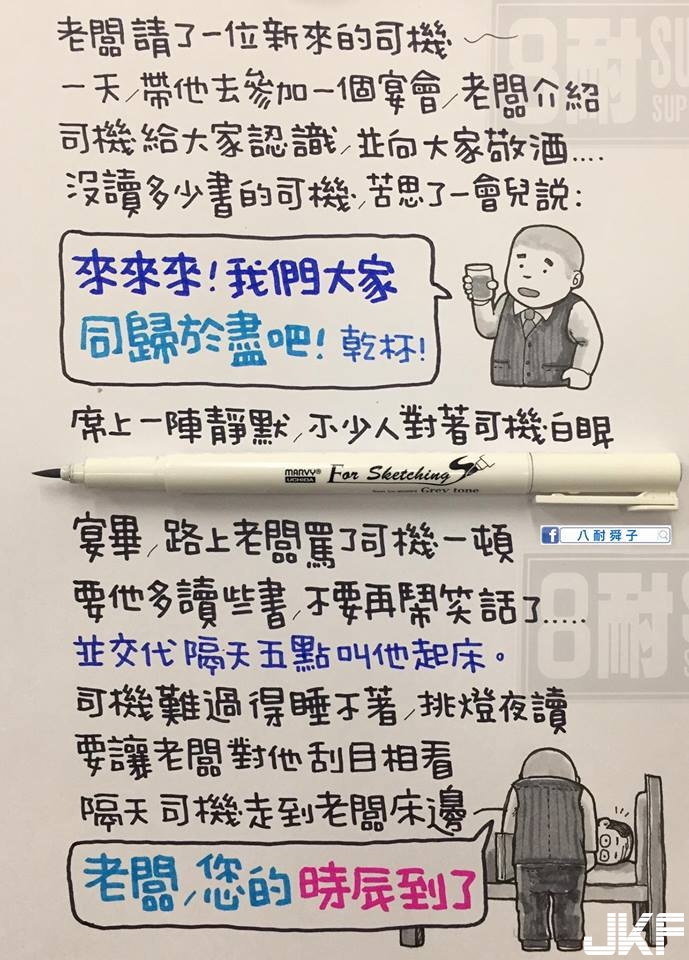 老闆請了一位新來的司機～
一天，帶他去參加一個宴會，老闆介紹
司機給大家認識，並向大家敬酒....
沒讀多少書的司機，苦思了一會兒說：
來來來！我們大家
同歸於盡吧！乾杯！
席上一陣靜默，不少人對著司機白眼
MARVY® UCHIDA For Sketching
Grey tone
八耐舜子
宴畢，路上老闆罵了司機一頓
要他多讀些書，不要再鬧笑話了.....
並交代隔天五點叫他起床。
司機難過得睡不著，挑燈夜讀
要讓老闆對他刮目相看
隔天司機走到老闆床邊～
老闆，您的時辰到了
8耐 SU
SUP
8耐S
JKF